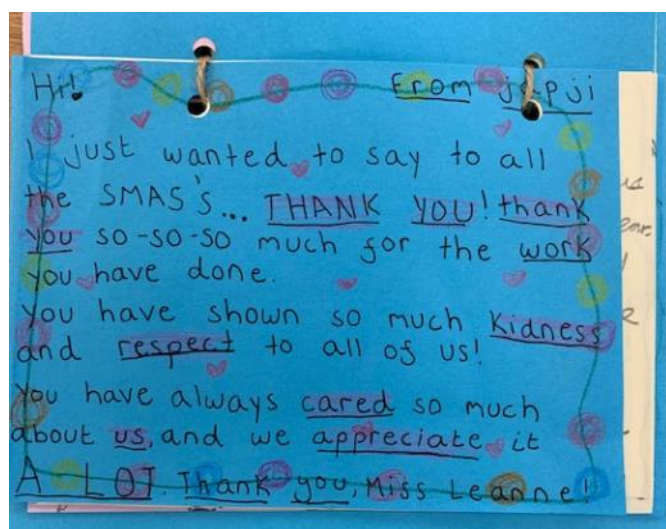 Hi! From japji
I just wanted to say to all
the SMAS's... THANK YOU! thank
you so-so-so much for the work
you have done.
You have shown so much Kidness
and respect to all of us!
You have always cared so much
about us, and we appreciate it
A LOT. Thank you, Miss Leanne!